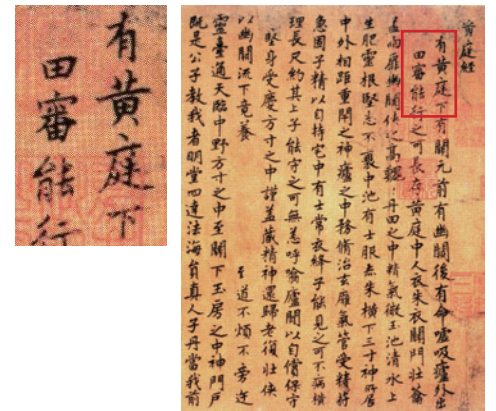 有黄庭下
田審能行
黄庭經
有黄庭下有關元前有幽闕後有命噓吸廬外出
田審能行之可長存黄庭中人衣朱衣關門壯籥
蓋兩扉幽闕俠之高巍丹田之中精氣微玉池清水上
生肥靈根堅志不衰中池有士服赤朱橫下三寸神所居
中外相距重閉之神廬之中務脩治玄膺氣管受精符
急固子精以自持宅中有士常衣絳子能見之可不病橫
理長尺約其上子能守之可無恙呼噏廬間以自償保守
堅身受慶方寸之中謹蓋藏精神還歸老復壯俠
以幽闕流下竟養 至道不煩不旁迕
靈臺通天臨中野方寸之中至關下玉房之中神門戶
既是公子教我者明堂四達法海員真人子丹當我前